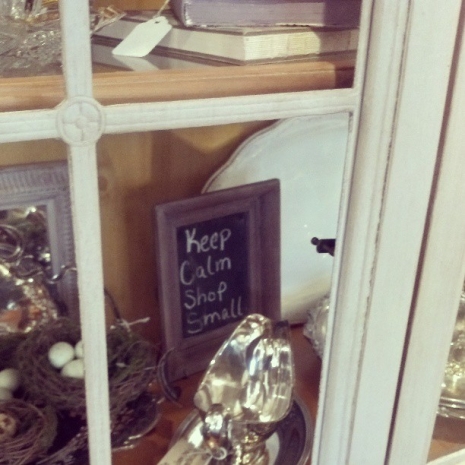 Keep
Calm
Shop
Small